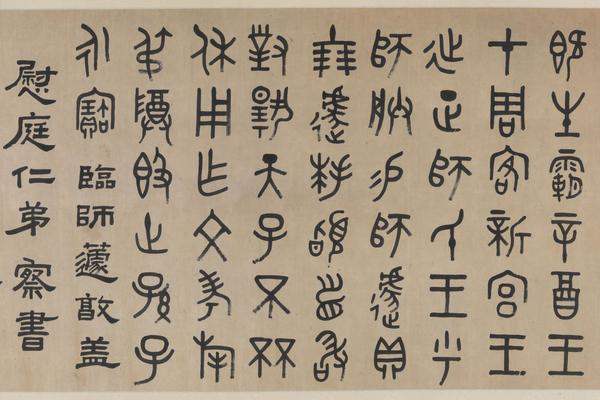 既生霸辛酉王
才周客新宮王
延正師氏王乎
師朕易師遽貝
十朋遽拜稽首敢
對揚天子不丕
休用乍文考旄
叔尊簋世孫子
永寶 臨師遽敦蓋
慰庭仁弟 察書